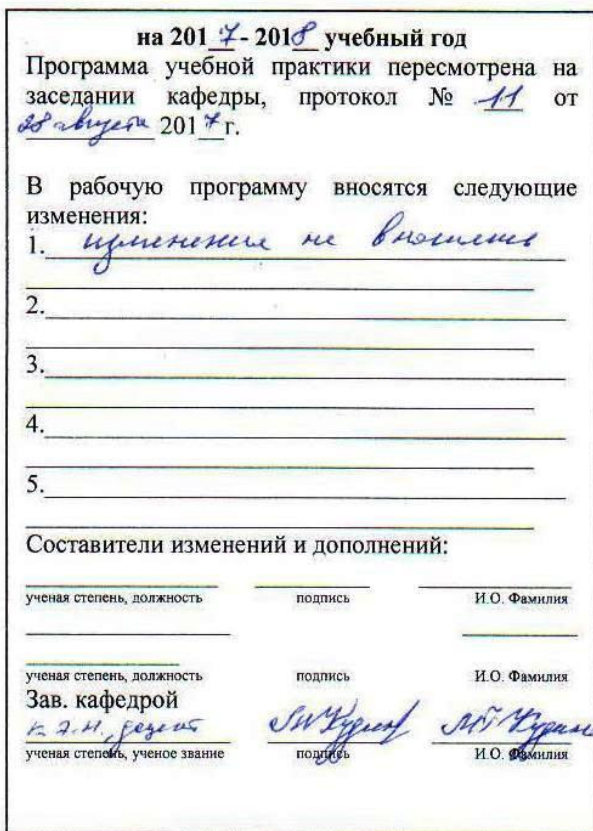 на 2017-2018 учебный год
Программа учебной практики пересмотрена на
заседании кафедры, протокол № 11 от
28 августа 2017г.
В рабочую программу вносятся следующие
изменения:
1. изменение не вносились
2.
3.
4.
5.
Составители изменений и дополнений:
ученая степень, должность подпись И.О. Фамилия
ученая степень, должность подпись И.О. Фамилия
Зав. кафедрой
к.э.н, доцент
ученая степень, ученое звание подпись И.О. Фамилия